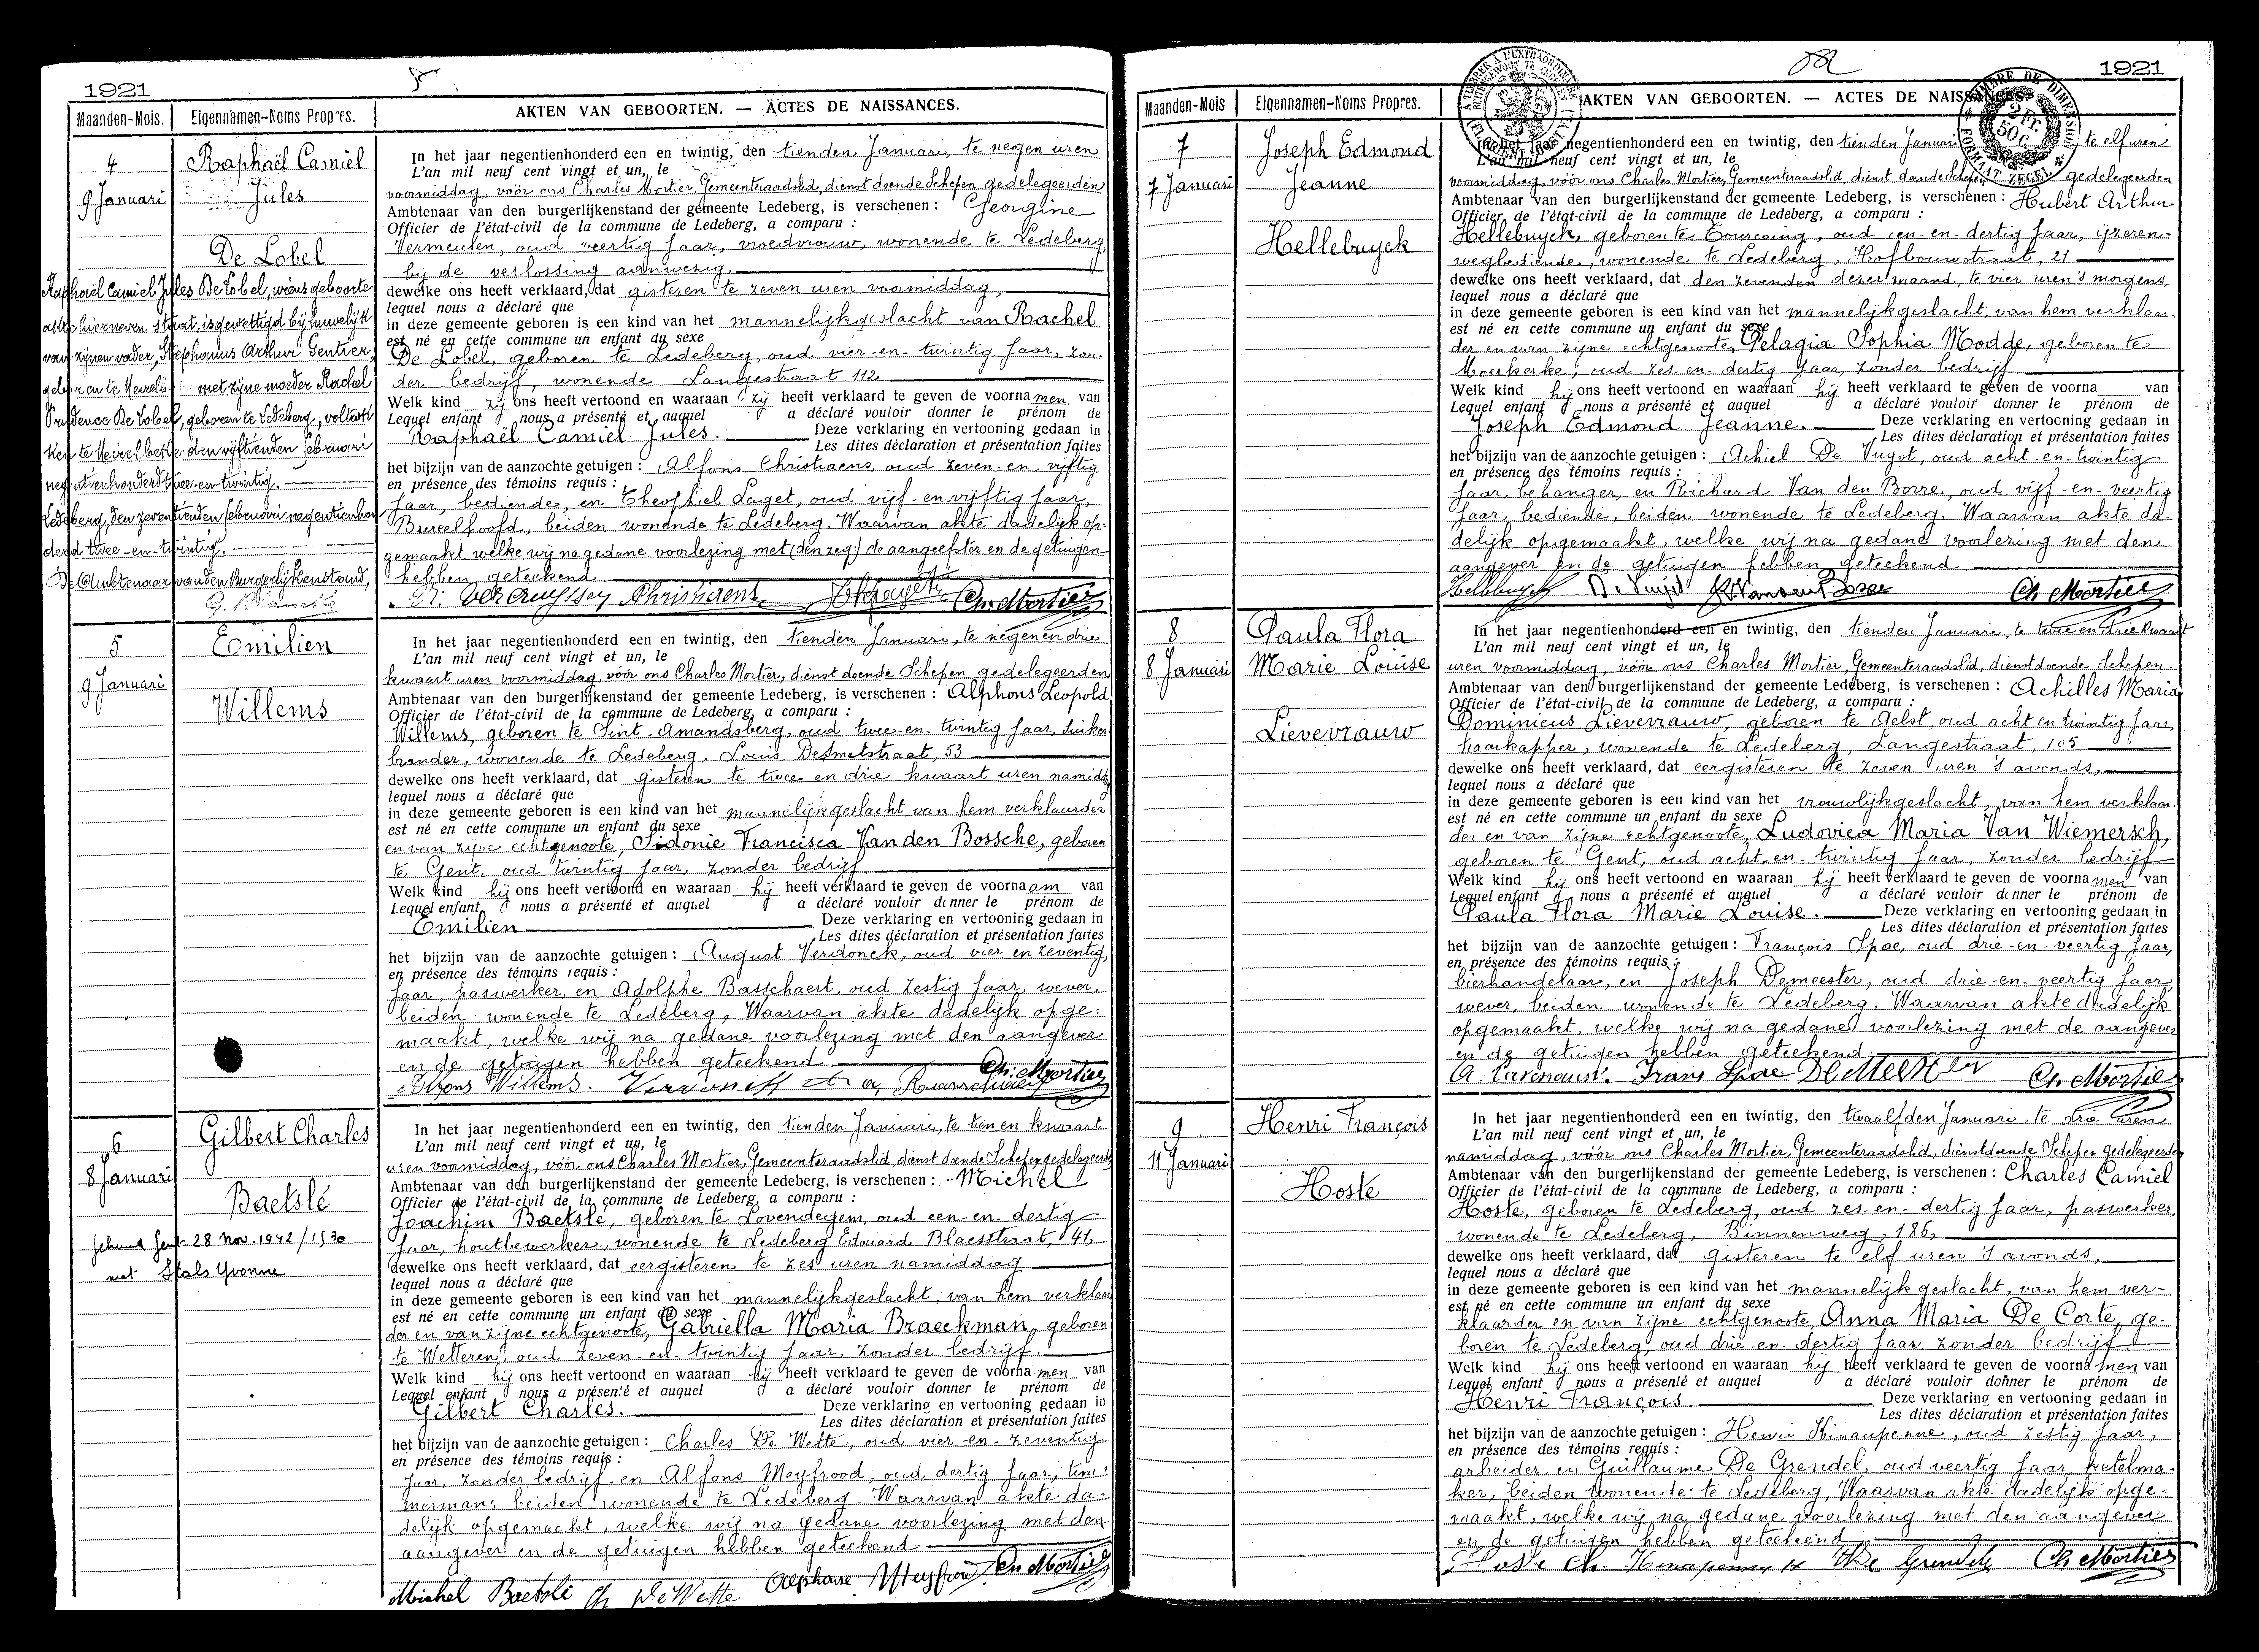 1921
5
Maanden-Mois. Eigennamen-Noms Propres. AKTEN VAN GEBOORTEN. — ACTES DE NAISSANCES.
4
9 Januari
Raphaël Camiel
Jules
De Lobel
Raphaël Camiel Jules De Lobel, wiens geboorte
akte hierneven staat, is gewettigd bij huwelijk
van zijnen vader, Stephanus Arthur Gentier,
geboren te met zijne moeder Rachel
Prudence De Lobel, geboren te Ledeberg, voltrok
ken te Meirelbeke den vijftienden februari
negentienhonderd twee-en-twintig.
Ledeberg, den zeventienden februari negentienhon
derd twee-en-twintig.
De Ambtenaar van den Burgerlijkenstand,
In het jaar negentienhonderd een en twintig, den tienden Januari, te negen uren
L'an mil neuf cent vingt et un, le
voormiddag, vóór ons Charles Mortier, Gemeenteraadslid, dienst doende Schepen gedelegeerden
Ambtenaar van den burgerlijkenstand der gemeente Ledeberg, is verschenen : Georgine
Officier de l'état-civil de la commune de Ledeberg, a comparu :
Vermeulen, oud veertig jaar, vroedvrouw, wonende te Ledeberg,
bij de verlossing aanwezig.
dewelke ons heeft verklaard, dat gisteren te zeven uren voormiddag,
lequel nous a déclaré que
in deze gemeente geboren is een kind van het mannelijkgeslacht van Rachel
est né en cette commune un enfant du sexe
De Lobel, geboren te Ledeberg, oud vier-en-twintig jaar, zon
der bedrijf, wonende Langestraat 112
Welk kind zij ons heeft vertoond en waaraan zij heeft verklaard te geven de voornamen van
Lequel enfant nous a présenté et auquel a déclaré vouloir donner le prénom de
Raphaël Camiel Jules. Deze verklaring en vertooning gedaan in
Les dites déclaration et présentation faites
het bijzijn van de aanzochte getuigen : Alfons Christiaens, oud zeven-en-vijftig
en présence des témoins requis :
jaar, bediende, en Theophiel Laget, oud vijf-en-vijftig jaar,
Bureelhoofd, beiden wonende te Ledeberg. Waarvan akte dadelijk op-
gemaakt welke wij na gedane voorlezing met (den zeg:) de aangeefster en de getuigen
hebben geteekend
Christiaens Ch. Mortier
5
9 Januari
Emilien
Willems
In het jaar negentienhonderd een en twintig, den tienden Januari, te negen en drie
L'an mil neuf cent vingt et un, le
kwaart uren voormiddag, vóór ons Charles Mortier, dienst doende Schepen gedelegeerden
Ambtenaar van den burgerlijkenstand der gemeente Ledeberg, is verschenen : Alphons Leopold
Officier de l'état-civil de la commune de Ledeberg, a comparu :
Willems, geboren te Sint-Amandsberg, oud twee-en-twintig jaar, suiker
brander, wonende te Ledeberg, Louis Desmetstraat, 53
dewelke ons heeft verklaard, dat gisteren te twee en drie kwaart uren namidd
lequel nous a déclaré que
in deze gemeente geboren is een kind van het mannelijkgeslacht van hem verklaarder
est né en cette commune un enfant du sexe
en van zijne echtgenoote, Sidonie Francisca Van den Bossche, geboren
te Gent, oud twintig jaar, zonder bedrijf
Welk kind hij ons heeft vertoond en waaraan hij heeft verklaard te geven de voornaam van
Lequel enfant nous a présenté et auquel a déclaré vouloir donner le prénom de
Emilien Deze verklaring en vertooning gedaan in
Les dites déclaration et présentation faites
het bijzijn van de aanzochte getuigen : August Verdonck, oud vier en zeventig
en présence des témoins requis :
jaar, paswerker, en Adolphe Basschaert, oud zestig jaar, wever,
beiden wonende te Ledeberg, Waarvan akte dadelijk opge:
maakt, welke wij na gedane voorlezing met den aangever
en de getuigen hebben geteekend
Alfons Willems. Verdonck Ch. Mortier
6
8 Januari
Gilbert Charles
Baetslé
Gehuwd Gent 28 Nov. 1942/1530
met Stals Yvonne
In het jaar negentienhonderd een en twintig, den tienden Januari, te tien en kwaart
L'an mil neuf cent vingt et un, le
uren voormiddag, vóór ons Charles Mortier, Gemeenteraadslid, dienst doende Schepen gedelegeerden
Ambtenaar van den burgerlijkenstand der gemeente Ledeberg, is verschenen : Michel
Officier de l'état-civil de la commune de Ledeberg, a comparu :
Joachim Baetslé, geboren te Lovendegem, oud een-en-dertig
jaar, houtbewerker, wonende te Ledeberg Edouard Blaesstraat, 41,
dewelke ons heeft verklaard, dat eergisteren te zes uren namiddag
lequel nous a déclaré que
in deze gemeente geboren is een kind van het mannelijkgeslacht, van hem verklaar
est né en cette commune un enfant du sexe
der en van zijne echtgenoote, Gabriella Maria Braeckman, geboren
te Wetteren, oud zeven-en-twintig jaar, zonder bedrijf.
Welk kind hij ons heeft vertoond en waaraan hij heeft verklaard te geven de voornamen van
Lequel enfant nous a présenté et auquel a déclaré vouloir donner le prénom de
Gilbert Charles. Deze verklaring en vertooning gedaan in
Les dites déclaration et présentation faites
het bijzijn van de aanzochte getuigen : Charles De Wette, oud vier-en-zeventig
en présence des témoins requis :
jaar, zonder bedrijf en Alfons Meyfrood, oud dertig jaar, tim:
merman, beiden wonende te Ledeberg Waarvan akte da-
delijk opgemaakt, welke wij na gedane voorlezing met den
aangever en de getuigen hebben geteekend
Michel Baetslé Ch. De Wette Alphons Meyfrood Ch. Mortier
1921
Maanden-Mois Eigennamen-Noms Propres. AKTEN VAN GEBOORTEN. — ACTES DE NAISSANCES.
2 FR. 50 C.
7
7 Januari
Joseph Edmond
Jeanne
Hellebuyck
In het jaar negentienhonderd een en twintig, den tienden Januari, te elf uren
L'an mil neuf cent vingt et un, le
voormiddag, vóór ons Charles Mortier, Gemeenteraadslid, dienst doende Schepen gedelegeerden
Ambtenaar van den burgerlijkenstand der gemeente Ledeberg, is verschenen : Hubert Arthur
Officier de l'état-civil de la commune de Ledeberg, a comparu :
Hellebuyck, geboren te Tourcoing, oud een-en-dertig jaar, ijzeren-
wegbediende, wonende te Ledeberg, Hofbouwstraat, 21
dewelke ons heeft verklaard, dat den zevenden dezer maand, te vier uren 's morgens,
lequel nous a déclaré que
in deze gemeente geboren is een kind van het mannelijkgeslacht, van hem verklaar-
est né en cette commune un enfant du sexe
der en van zijne echtgenoote, Pelagia Sophia Modde, geboren te
Moerkerke, oud zes-en-dertig jaar, zonder bedrijf
Welk kind hij ons heeft vertoond en waaraan hij heeft verklaard te geven de voorna van
Lequel enfant nous a présenté et auquel a déclaré vouloir donner le prénom de
Joseph Edmond Jeanne. Deze verklaring en vertooning gedaan in
Les dites déclaration et présentation faites
het bijzijn van de aanzochte getuigen : Achiel De Vuyst, oud acht-en-twintig
en présence des témoins requis :
jaar, behanger, en Richard Van den Borre, oud vijf-en-veertig
jaar, bediende, beiden wonende te Ledeberg. Waarvan akte da-
delijk opgemaakt, welke wij na gedane voorlezing met den
aangever en de getuigen hebben geteekend
Hellebuyck De Vuyst Ch. Mortier
8
8 Januari
Paula Flora
Marie Louise
Lievevrauw
In het jaar negentienhonderd een en twintig, den tienden Januari, te twee en drie kwaart
L'an mil neuf cent vingt et un, le
uren voormiddag, vóór ons Charles Mortier, Gemeenteraadslid, dienstdoende Schepen
Ambtenaar van den burgerlijkenstand der gemeente Ledeberg, is verschenen : Achilles Maria
Officier de l'état-civil de la commune de Ledeberg, a comparu :
Dominicus Lievevrauw, geboren te Aelst, oud acht en twintig jaar,
haarkapper, wonende te Ledeberg, Langestraat, 105
dewelke ons heeft verklaard, dat eergisteren te zeven uren 's avonds,
lequel nous a déclaré que
in deze gemeente geboren is een kind van het vrouwlijkgeslacht, van hem verklaar-
est né en cette commune un enfant du sexe
der en van zijne echtgenoote, Ludovica Maria Van Wiemersch,
geboren te Gent, oud acht-en-twintig jaar, zonder bedrijf
Welk kind hij ons heeft vertoond en waaraan hij heeft verklaard te geven de voornamen van
Lequel enfant nous a présenté et auquel a déclaré vouloir donner le prénom de
Paula Flora Marie Louise. Deze verklaring en vertooning gedaan in
Les dites déclaration et présentation faites
het bijzijn van de aanzochte getuigen : François Spae, oud drie-en-veertig jaar,
en présence des témoins requis :
bierhandelaar, en Joseph Demeester, oud drie-en-veertig jaar
wever, beiden wonende te Ledeberg. Waarvan akte dadelijk
opgemaakt, welke wij na gedane voorlezing met de aangever
en de getuigen hebben geteekend.
Frans Spae De Meester Ch. Mortier
9
11 Januari
Henri François
Hoste
In het jaar negentienhonderd een en twintig, den twaalfden Januari, te drie uren
L'an mil neuf cent vingt et un, le
namiddag, vóór ons Charles Mortier, Gemeenteraadslid, dienstdoende Schepen gedelegeerden
Ambtenaar van den burgerlijkenstand der gemeente Ledeberg, is verschenen : Charles Camiel
Officier de l'état-civil de la commune de Ledeberg, a comparu :
Hoste, geboren te Ledeberg, oud zes-en-dertig jaar, paswerker,
wonende te Ledeberg, Binnenweg, 186,
dewelke ons heeft verklaard, dat gisteren te elf uren 's avonds,
lequel nous a déclaré que
in deze gemeente geboren is een kind van het mannelijk geslacht, van hem ver-
est né en cette commune un enfant du sexe
klaarder en van zijne echtgenoote Anna Maria De Corte, ge-
boren te Ledeberg, oud drie-en-dertig jaar zonder bedrijf
Welk kind hij ons heeft vertoond en waaraan hij heeft verklaard te geven de voornamen van
Lequel enfant nous a présenté et auquel a déclaré vouloir donner le prénom de
Henri François. Deze verklaring en vertooning gedaan in
Les dites déclaration et présentation faites
het bijzijn van de aanzochte getuigen : Henri Hinaupenne, oud zestig jaar,
en présence des témoins requis :
arbeider en Guillaume De Grendel, oud veertig jaar, ketelma-
ker, beiden wonende te Ledeberg, Waarvan akte dadelijk opge-
maakt, welke wij na gedane voorlezing met den aangever
en de getuigen hebben geteekend
Hoste Ch. Ch. Mortier